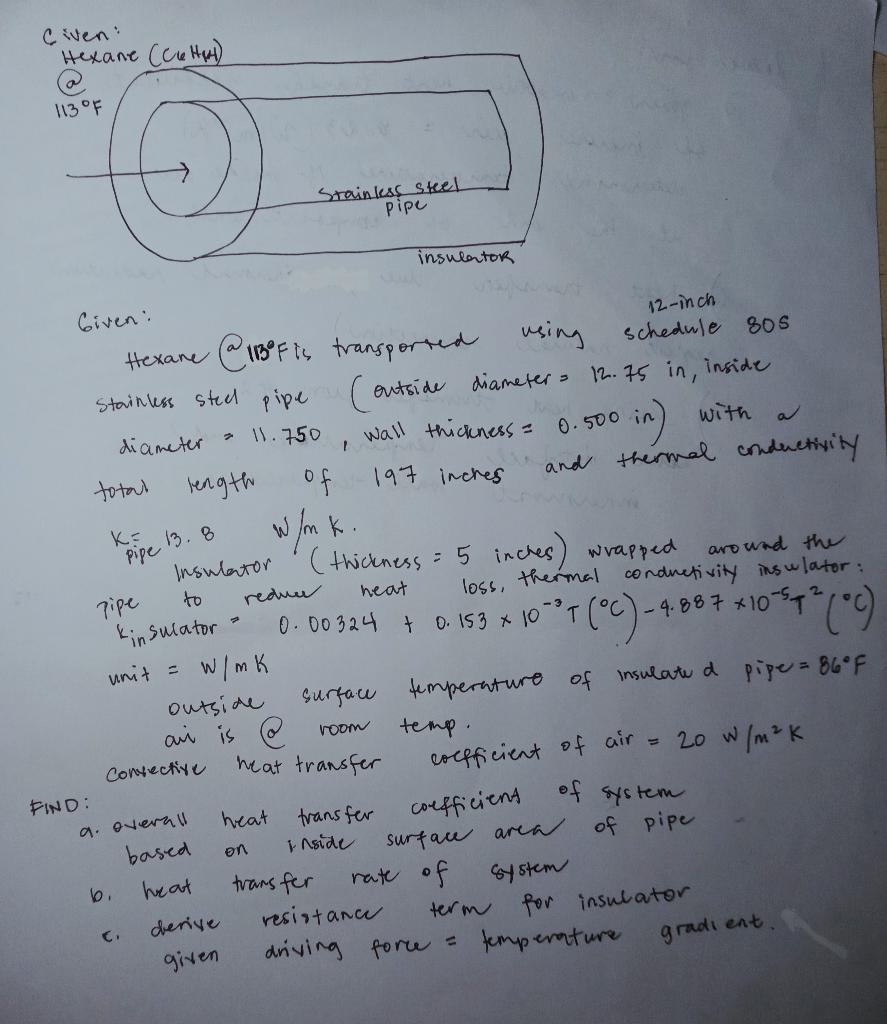 Given:
Hexane (C6H14)
@
113°F
Stainless steel
pipe
insulator
Given:
12-inch
Hexane @ 113°F is transported using schedule 80S
stainless steel pipe (outside diameter = 12.75 in, inside
diameter = 11.750, wall thickness = 0.500 in) with a
total length of 197 inches and thermal conductivity
k pipe = 13.8 W/mK.
Insulator (thickness = 5 inches) wrapped around the
pipe to reduce heat loss, thermal conductivity insulator:
kinsulator = 0.00324 + 0.153 x 10⁻³ T(°C) - 4.887 x 10⁻⁵ T² (°C)
unit = W/mK
outside surface temperature of insulated pipe = 86°F
air is @ room temp.
convective heat transfer coefficient of air = 20 W/m²K
FIND:
a. overall heat transfer coefficient of system
based on inside surface area of pipe
b. heat transfer rate of system
c. derive resistance term for insulator
given driving force = temperature gradient.